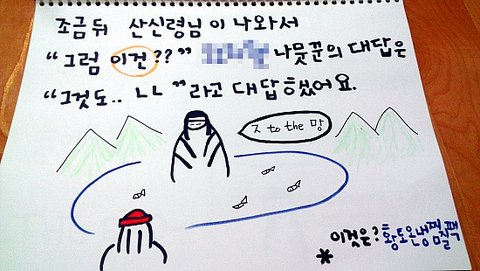 조금 뒤 산신령님이 나와서
“그럼 이건??” 나뭇꾼의 대답은
“그것도.. ㄴㄴ”라고 대답했어요.
ㅈ to the 망
이것은? 황토온냉찜질팩
*